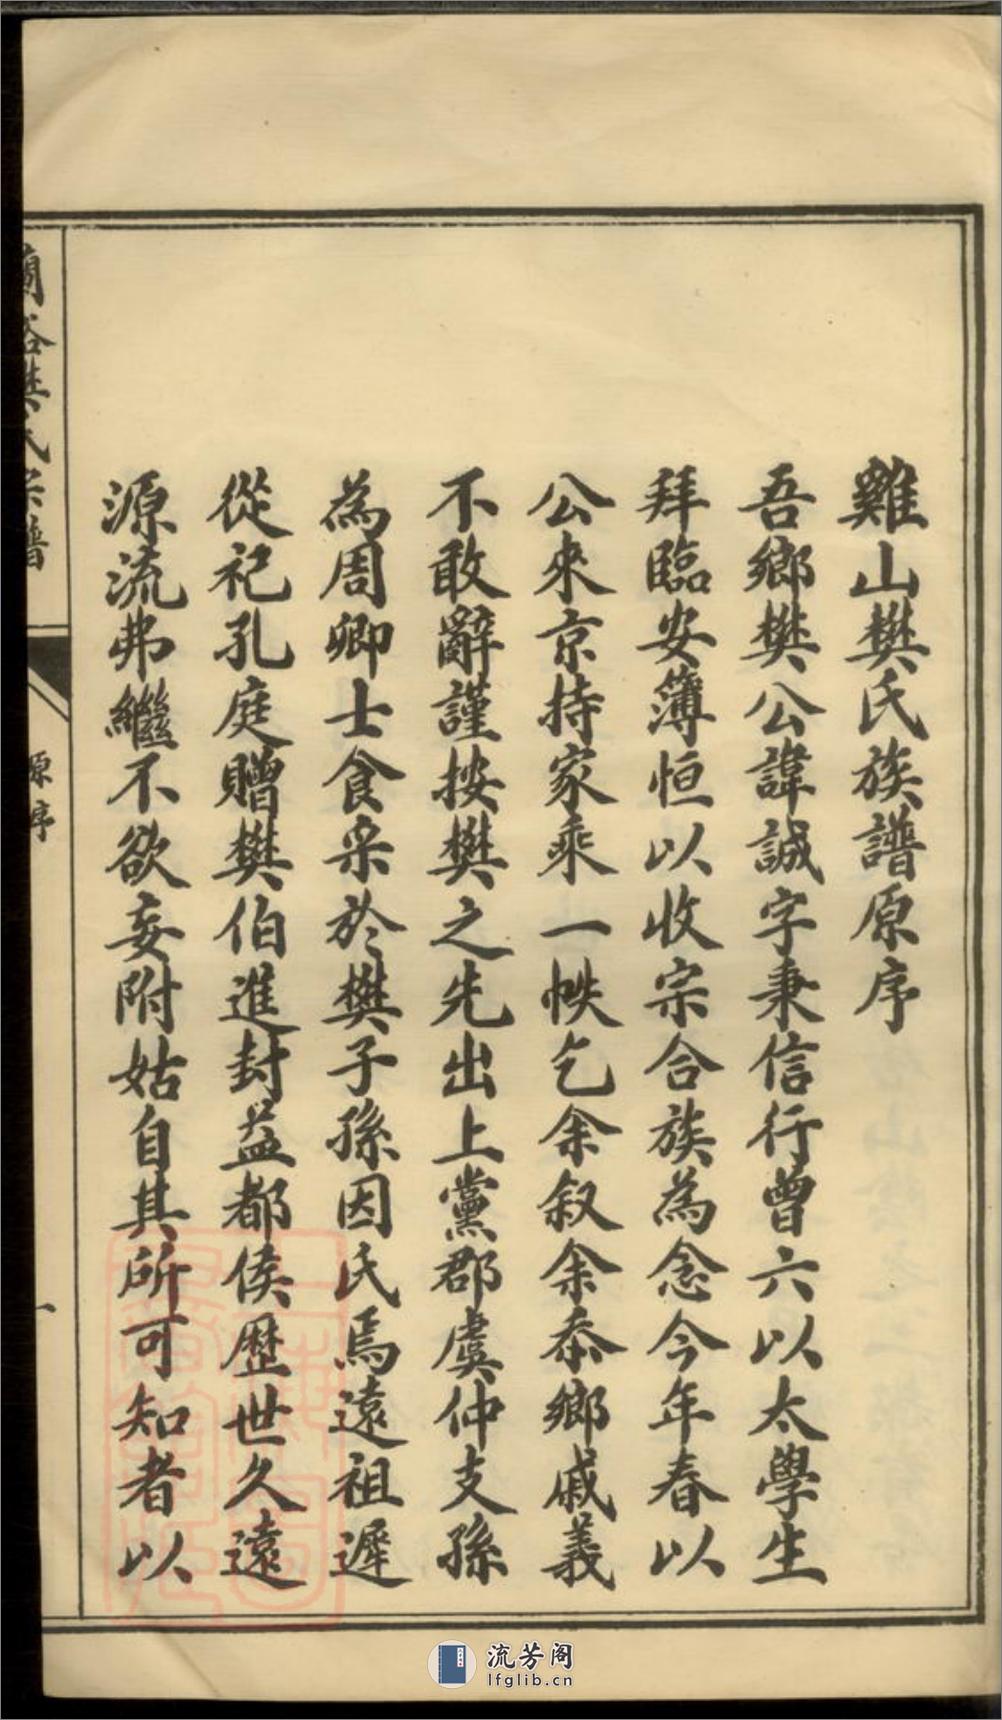 雞山樊氏族譜原序
吾鄉樊公諱誠字秉信行曾六以太學生
拜臨安簿恒以收宗合族為念今年春以
公來京持家乘一帙乞余叙余忝鄉戚義
不敢辭謹按樊之先出上黨郡虞仲支孫
為周卿士食采於樊子孫因氏焉遠祖遲
從祀孔庭贈樊伯進封益都侯歷世久遠
源流弗繼不欲妄附姑自其所可知者以
蘭谿樊氏宗譜
原序
一
流芳阁
lfglib.cn